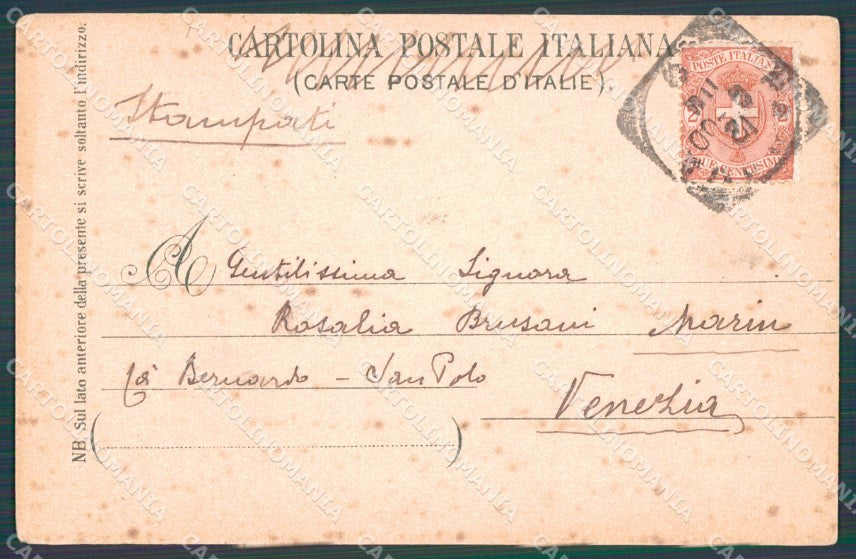 CARTOLINA POSTALE ITALIANA
(CARTE POSTALE D'ITALIE).
Stampati
POSTE ITALIANE
2
2
DUE CENTESIMI
A Gentilissima Signora
Rosalia Brusani Marin
Cà Bernardo - San Polo
Venezia
( )
NB. Sul lato anteriore della presente si scrive soltanto l'indirizzo.
CARTOLINOMANIA